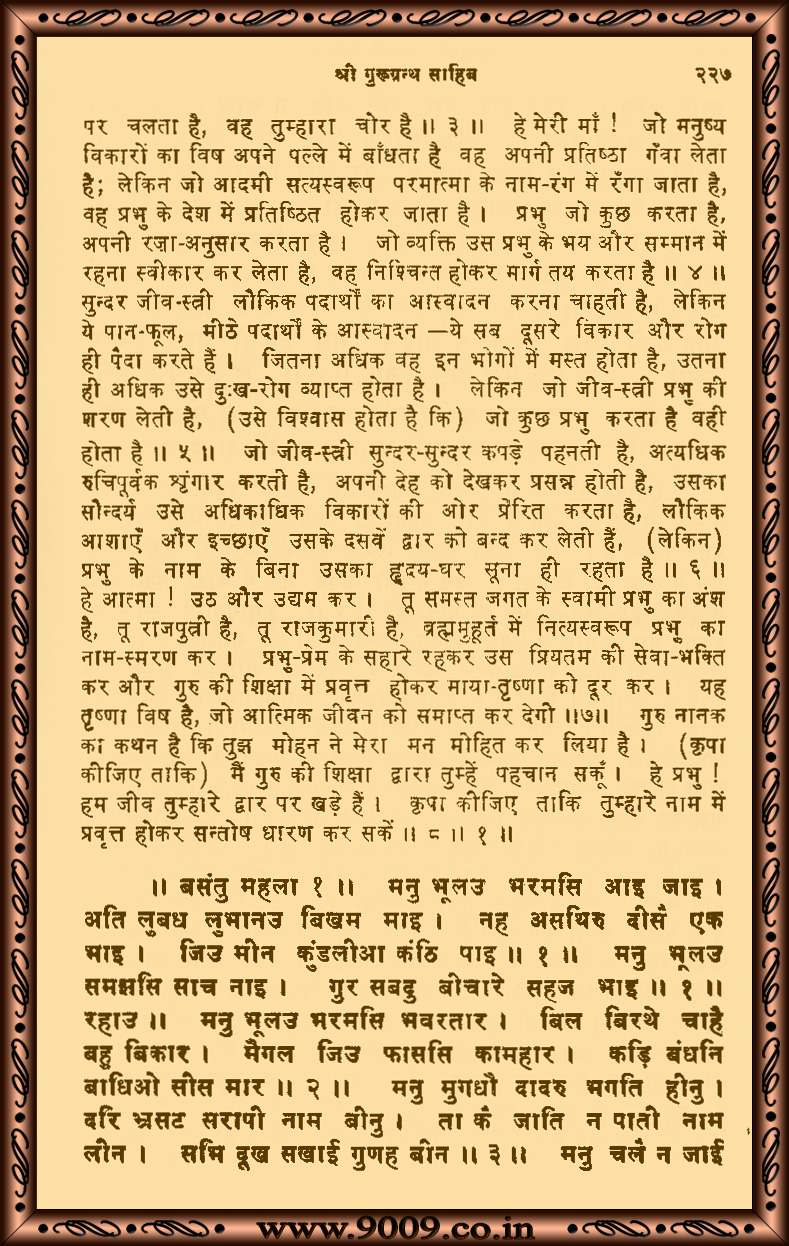 श्री गुरुग्रन्थ साहिब २२७
पर चलता है, वह तुम्हारा चोर है ॥ ३ ॥ हे मेरी माँ ! जो मनुष्य
विकारों का विष अपने पल्ले में बाँधता है वह अपनी प्रतिष्ठा गँवा लेता
है; लेकिन जो आदमी सत्यस्वरूप परमात्मा के नाम-रंग में रँगा जाता है,
वह प्रभु के देश में प्रतिष्ठित होकर जाता है । प्रभु जो कुछ करता है,
अपनी रज़ा-अनुसार करता है । जो व्यक्ति उस प्रभु के भय और सम्मान में
रहना स्वीकार कर लेता है, वह निश्चिन्त होकर मार्ग तय करता है ॥ ४ ॥
सुन्दर जीव-स्त्री लौकिक पदार्थों का आस्वादन करना चाहती है, लेकिन
ये पान-फूल, मीठे पदार्थों के आस्वादन —ये सब दूसरे विकार और रोग
ही पैदा करते हैं । जितना अधिक वह इन भोगों में मस्त होता है, उतना
ही अधिक उसे दुःख-रोग व्याप्त होता है । लेकिन जो जीव-स्त्री प्रभु की
शरण लेती है, (उसे विश्वास होता है कि) जो कुछ प्रभु करता है वही
होता है ॥ ५ ॥ जो जीव-स्त्री सुन्दर-सुन्दर कपड़े पहनती है, अत्यधिक
रुचिपूर्वक श्रृंगार करती है, अपनी देह को देखकर प्रसन्न होती है, उसका
सौन्दर्य उसे अधिकाधिक विकारों की ओर प्रेरित करता है, लौकिक
आशाएँ और इच्छाएँ उसके दसवें द्वार को बन्द कर लेती हैं, (लेकिन)
प्रभु के नाम के बिना उसका हृदय-घर सूना ही रहता है ॥ ६ ॥
हे आत्मा ! उठ और उद्यम कर । तू समस्त जगत के स्वामी प्रभु का अंश
है, तू राजपुत्री है, तू राजकुमारी है, ब्रह्ममुहूर्त में नित्यस्वरूप प्रभु का
नाम-स्मरण कर । प्रभु-प्रेम के सहारे रहकर उस प्रियतम की सेवा-भक्ति
कर और गुरु की शिक्षा में प्रवृत्त होकर माया-तृष्णा को दूर कर । यह
तृष्णा विष है, जो आत्मिक जीवन को समाप्त कर देगी ॥७॥ गुरु नानक
का कथन है कि तुझ मोहन ने मेरा मन मोहित कर लिया है । (कृपा
कीजिए ताकि) मैं गुरु की शिक्षा द्वारा तुम्हें पहचान सकूँ । हे प्रभु !
हम जीव तुम्हारे द्वार पर खड़े हैं । कृपा कीजिए ताकि तुम्हारे नाम में
प्रवृत्त होकर सन्तोष धारण कर सकें ॥ ८ ॥ १ ॥
॥ बसंतु महला १ ॥ मनु भूलउ भरमसि आइ जाइ ।
अति लुबध लुभानउ बिखम माइ । नह असथिरु दीसै एक
भाइ । जिउ मीन कुंडलीआ कंठि पाइ ॥ १ ॥ मनु भूलउ
समझसि साच नाइ । गुर सबदु बीचारे सहज भाइ ॥ १ ॥
रहाउ ॥ मनु भूलउ भरमसि भवरतार । बिल बिरथे चाहै
बहु बिकार । मैगल जिउ फाससि कामहार । कड़ि बंधनि
बाधिओ सीस मार ॥ २ ॥ मनु मुगधौ दादरु भगति हीनु ।
दरि भ्रसट सरापी नाम बीनु । ता कै जाति न पाती नाम
लीन । सभि दूख सखाई गुणह बीन ॥ ३ ॥ मनु चलै न जाई
www.9009.co.in